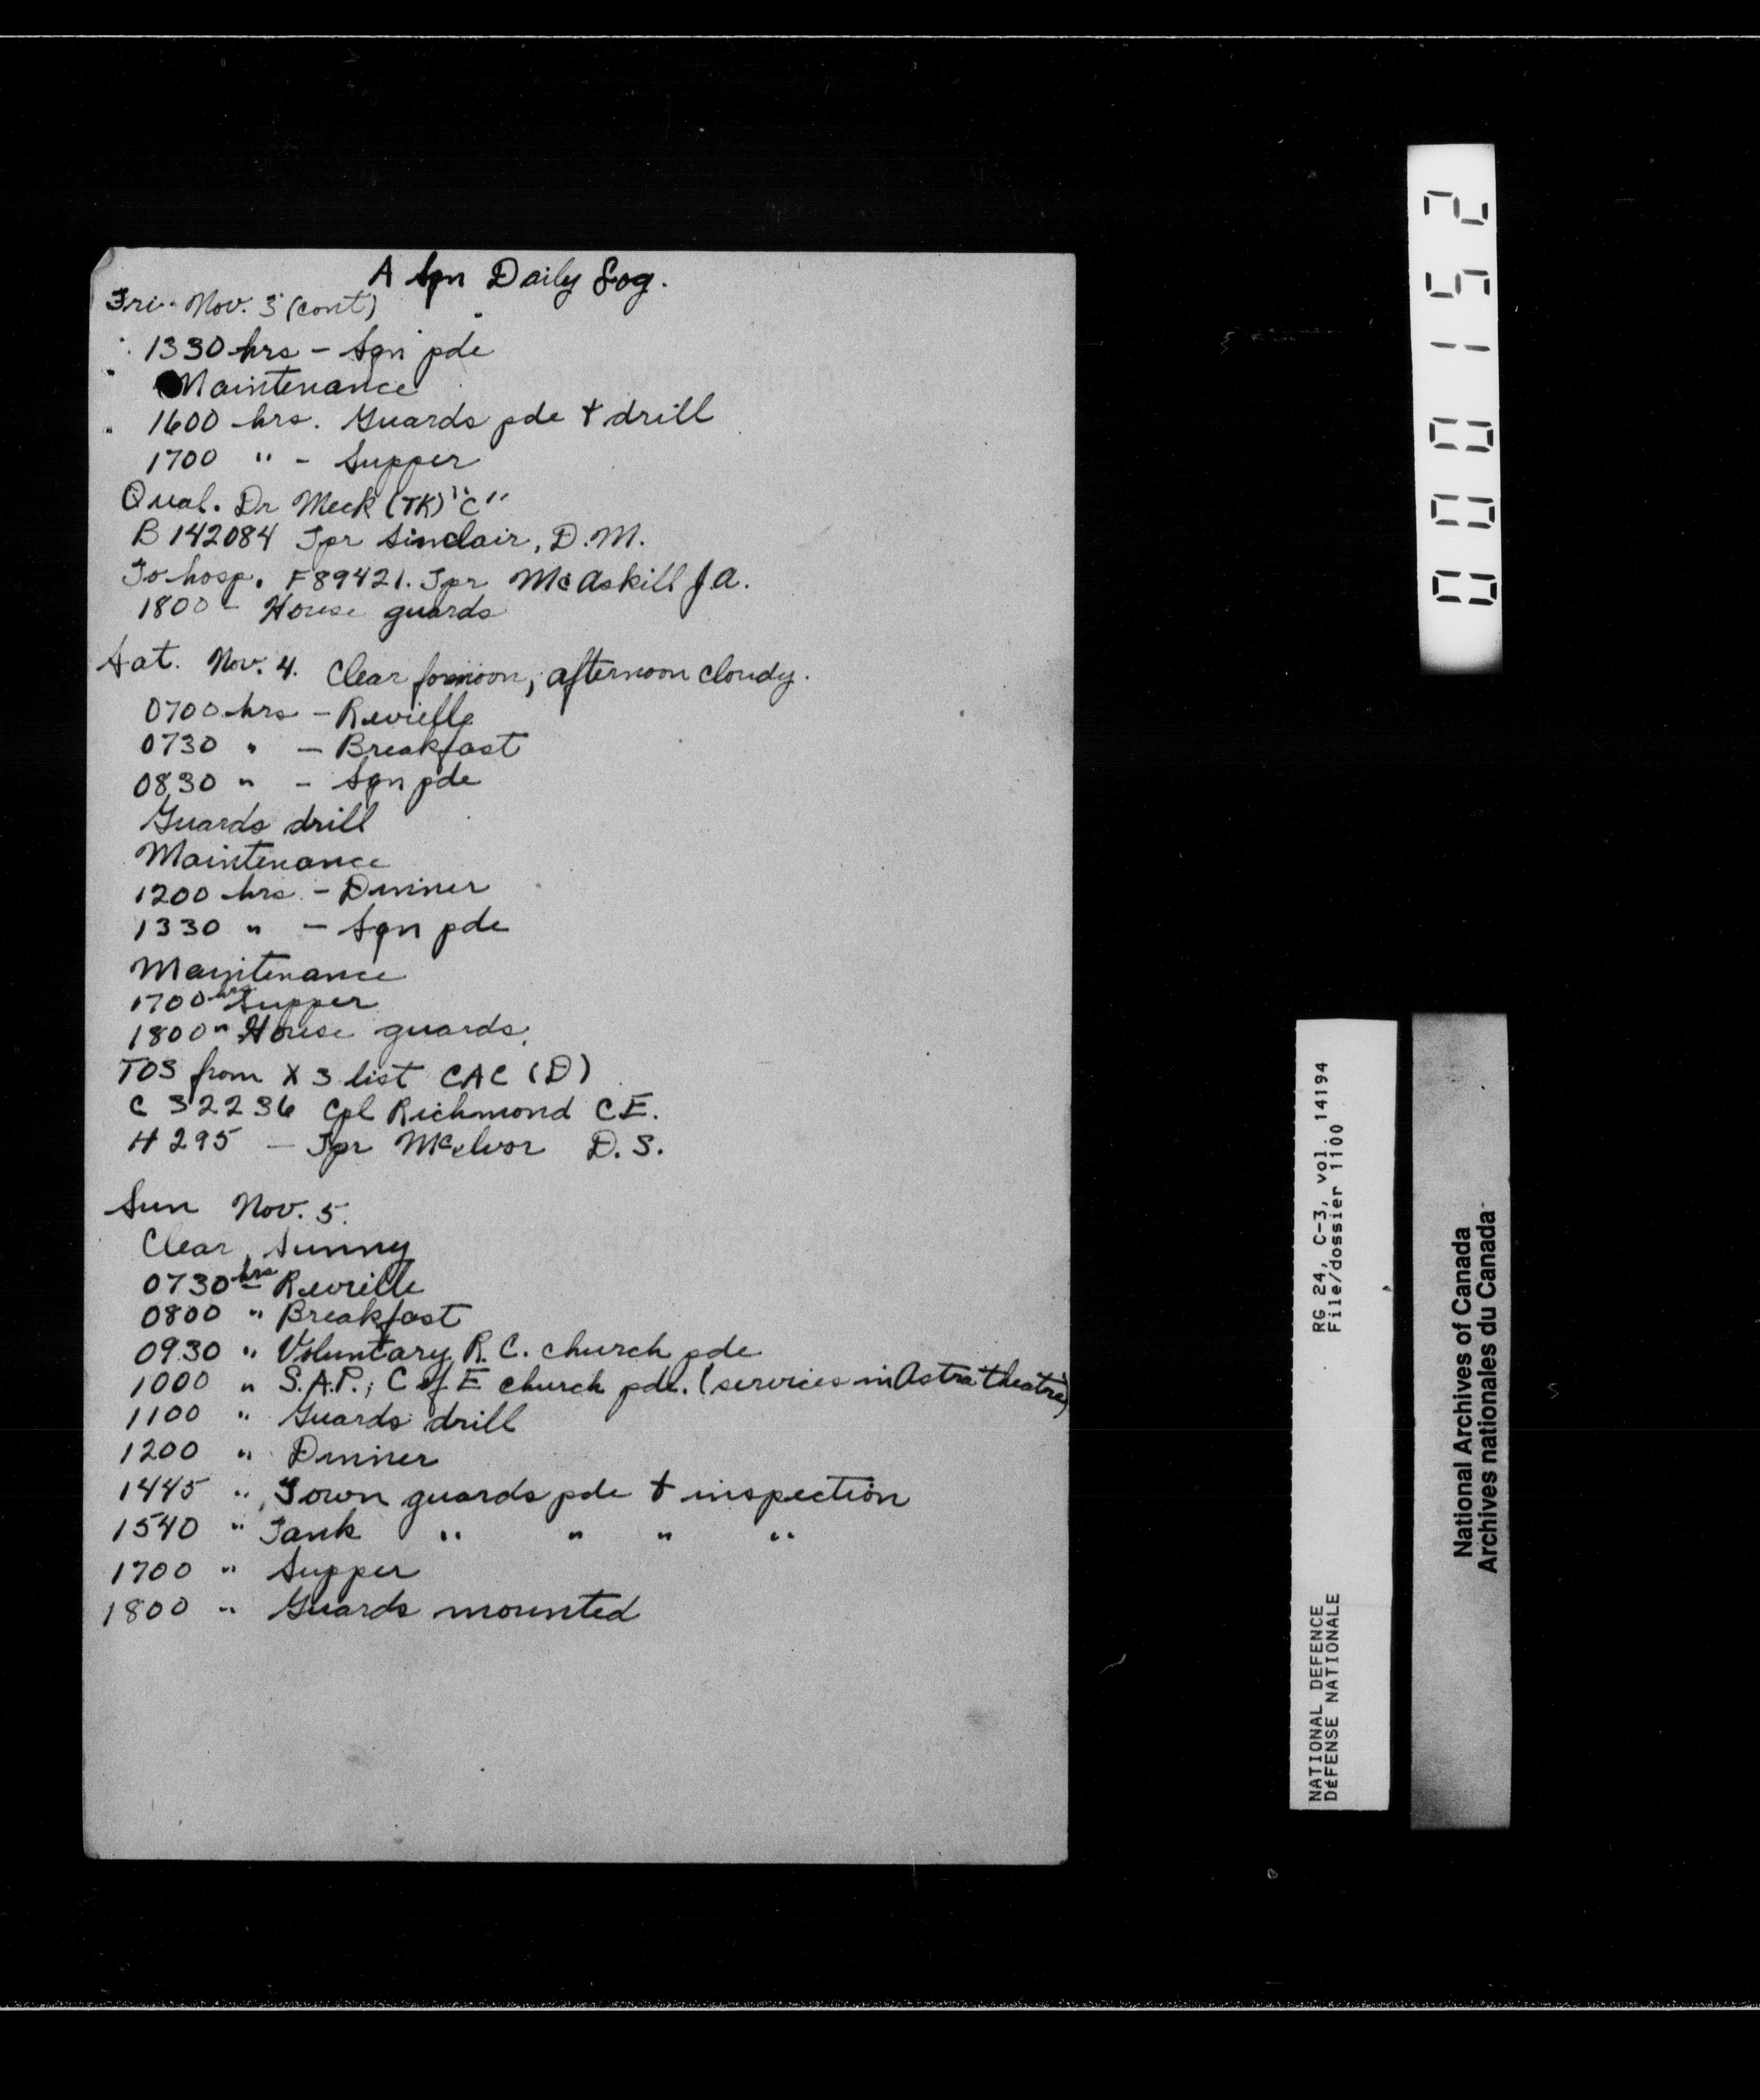 A Sqn Daily Log.
Fri. Nov. 3 (cont)
1330 hrs - Sqn pde
Maintenance
1600 hrs. Guards pde + drill
1700 " - Supper
Qual. Dr Meck (TK) "C"
B 142084 Tpr Sinclair, D.M.
To hosp. F89421. Tpr McAskill J A.
1800 - House guards
Sat. Nov. 4. Clear forenoon, afternoon cloudy.
0700 hrs - Revielle
0730 " - Breakfast
0830 " - Sqn pde
Guards drill
Maintenance
1200 hrs - Dinner
1330 " - Sqn pde
Maintenance
1700 hrs Supper
1800 " House guards.
TOS from X 3 list CAC (D)
C 32236 Cpl Richmond C E.
H 295 - Tpr McElvor D. S.
Sun Nov. 5.
Clear, Sunny
0730 hrs Revielle
0800 " Breakfast
0930 " Voluntary R. C. church pde
1000 " S.A.P.; C of E church pde. (services in Astra theatre)
1100 " Guards drill
1200 " Dinner
1445 " Town guards pde + inspection
1540 " Tank " " " "
1700 " Supper
1800 " Guards mounted
000152
RG 24, C-3, vol. 14194
File/dossier 1100
NATIONAL DEFENCE
DéFENSE NATIONALE
National Archives of Canada
Archives nationales du Canada